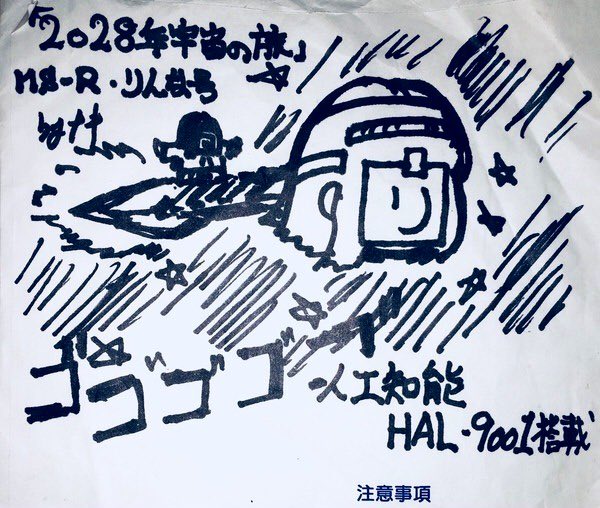 「2028年宇宙の旅」
りんな号
リ
ゴゴゴゴ
人工知能
HAL-9001搭載
注意事項